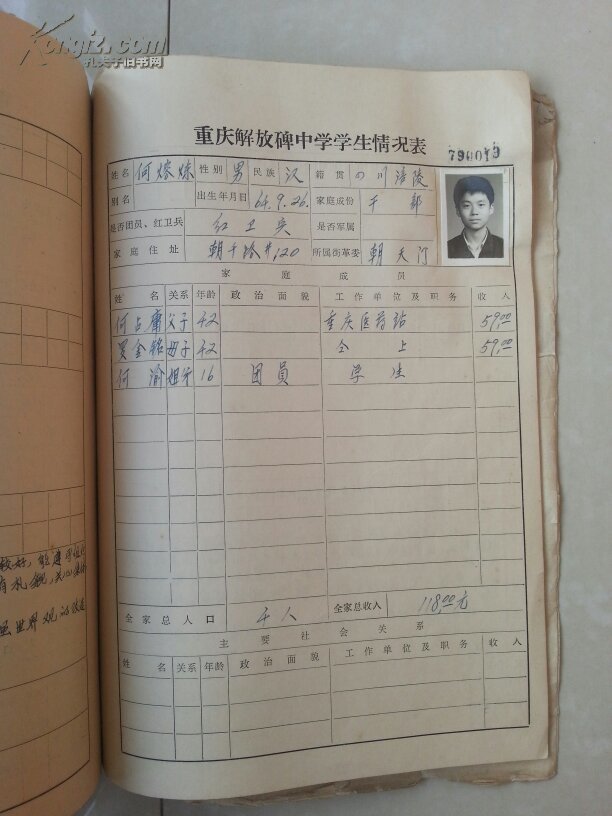 Kongfz.com
孔夫子旧书网
重庆解放碑中学学生情况表
790019
姓名 何熔炼 性别 男 民族 汉 籍贯 四川涪陵
别名 出生年月日 64.9.26. 家庭成份 干部
是否团员、红卫兵 红卫兵 是否军属
家庭住址 朝千 120 所属街革委 朝天门
家庭成员
姓名 关系 年龄 政治面貌 工作单位及职务 收入
何占 父子 42 重庆医药站 59.00
金铭 母子 42 仝上 59.00
何渝 姐 16 团員 学生
全家总人口 4人 全家总收入 118.00元
主要社会关系
姓名 关系 年龄 政治面貌 工作单位及职务 收入
较好，能
世界观的改造